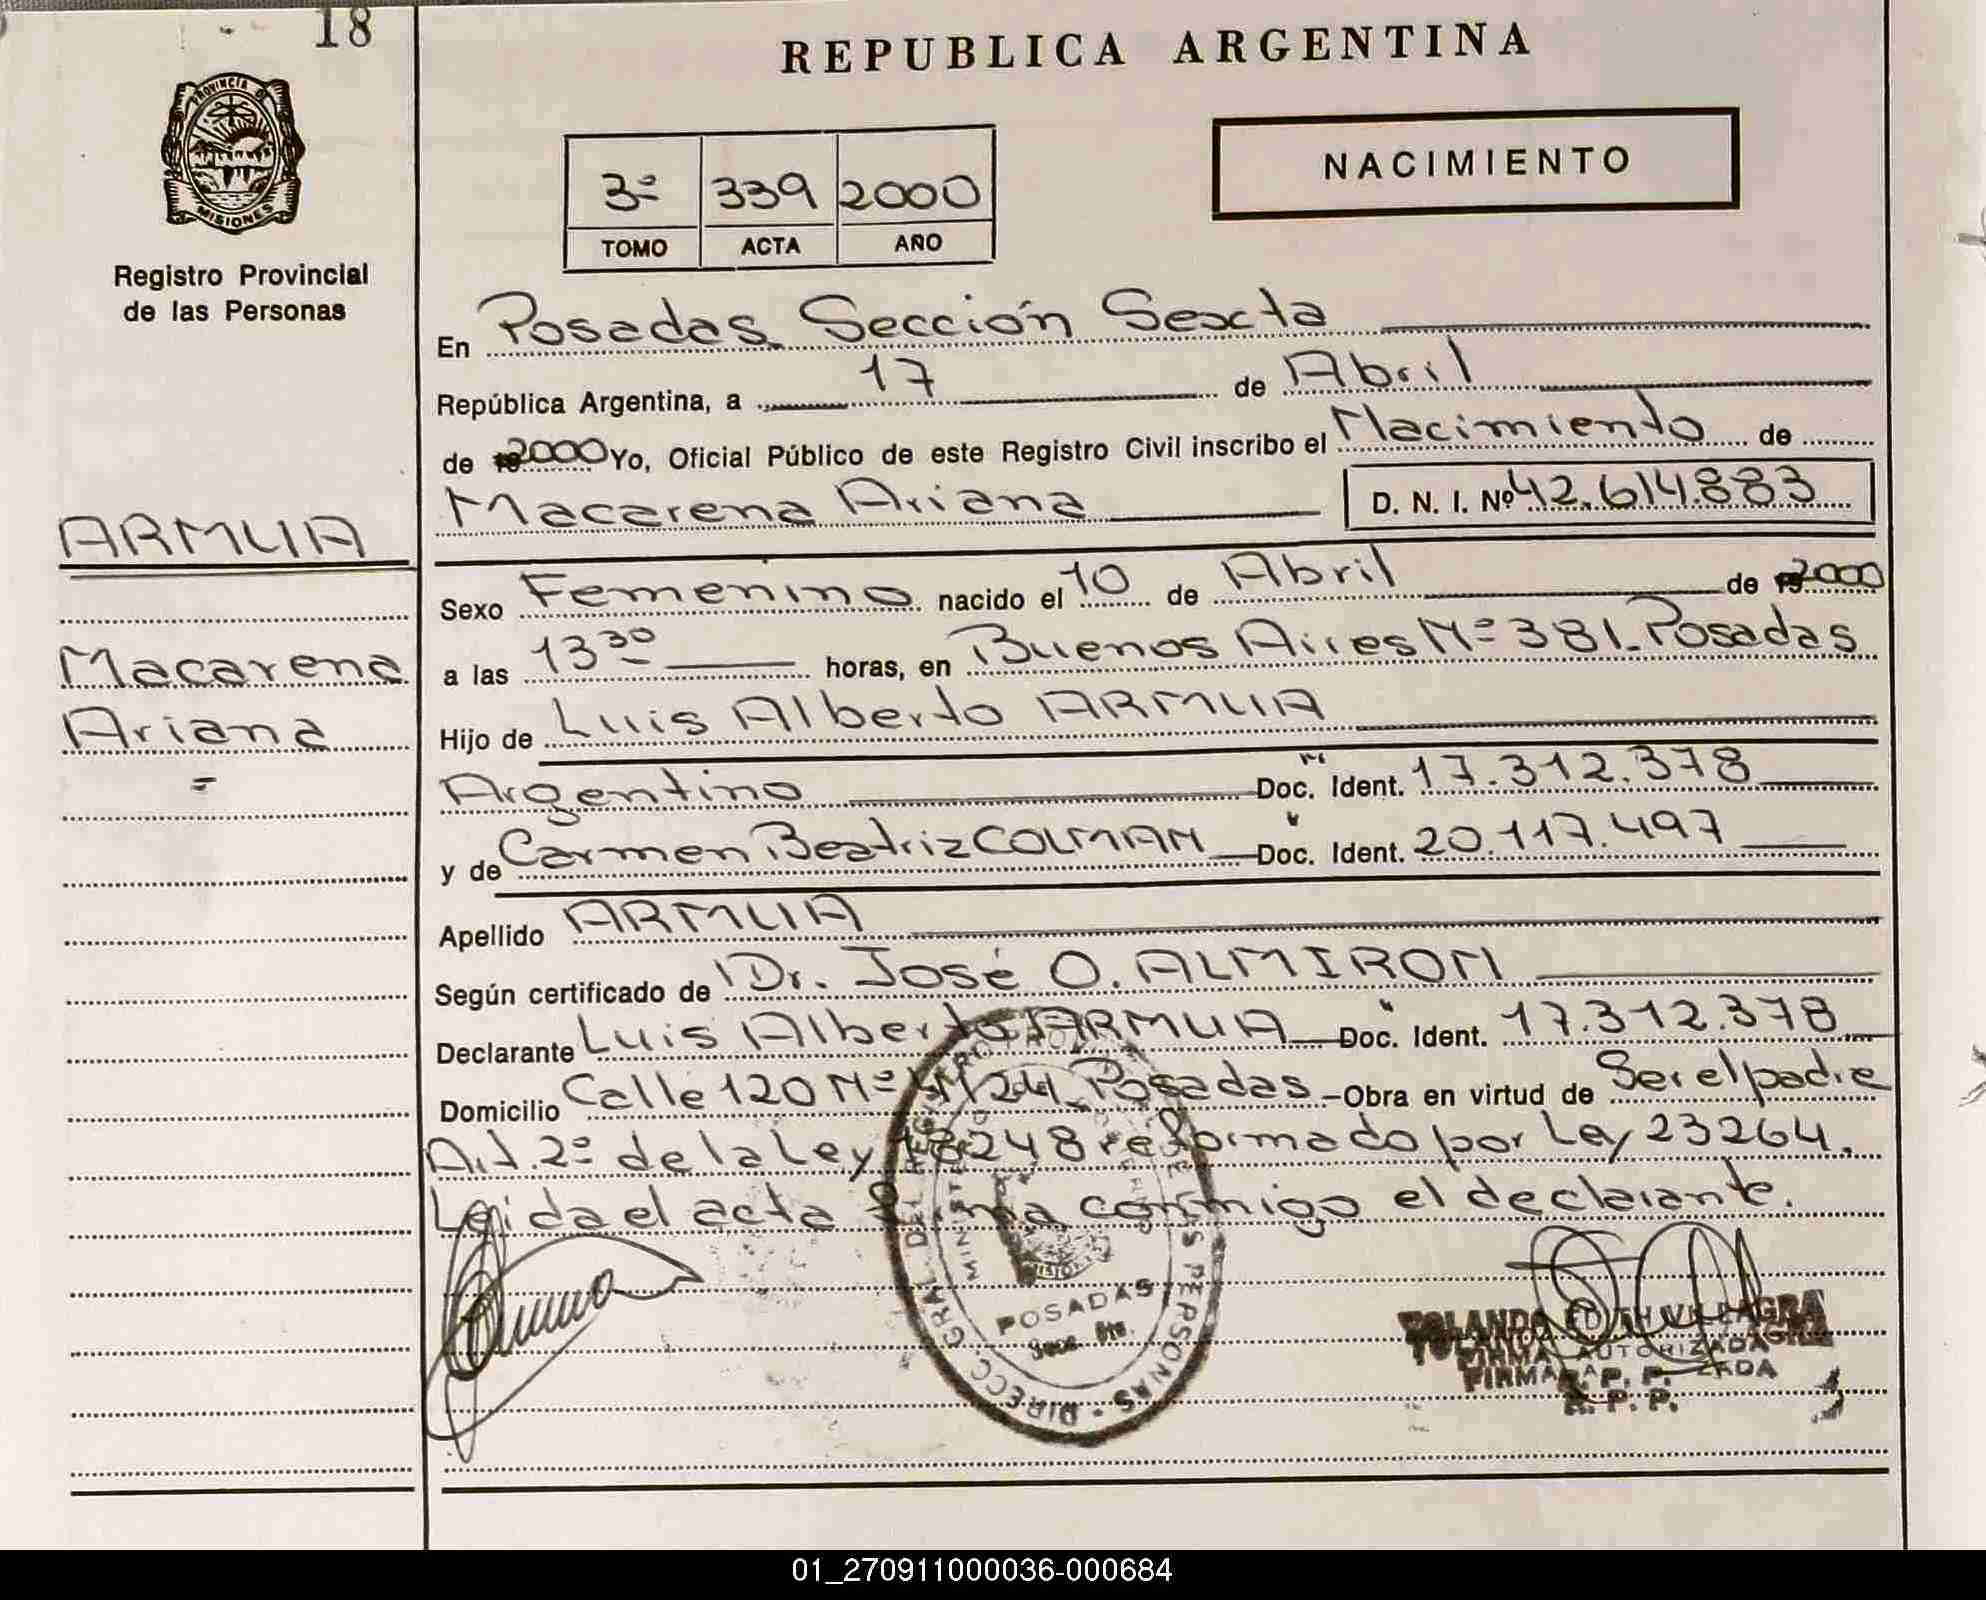 18
REPUBLICA ARGENTINA
PROVINCIA DE
MISIONES
Registro Provincial
de las Personas
3º 339 2000
TOMO ACTA AÑO
NACIMIENTO
En Posadas Sección Sexta
República Argentina, a 17 de Abril
de 2000 Yo, Oficial Público de este Registro Civil inscribo el Nacimiento de
Macarena Ariana D. N. I. Nº 42.614.883
ARMUA
Sexo Femenino nacido el 10 de Abril de 2000
a las 13 30 horas, en Buenos Aires Nº 381. Posadas
Macarena
Ariana
Hijo de Luis Alberto ARMUA
Argentino Doc. Ident. 17.312.378
y de Carmen Beatriz COLMAN Doc. Ident. 20.117.497
Apellido ARMUA
Según certificado de Dr. José O. ALMIRON
Declarante Luis Alberto ARMUA Doc. Ident. 17.312.378
Domicilio Calle 120 Nº Posadas - Obra en virtud de Ser el padre
Art. 2º de la Ley 18248 reformado por Ley 23264.
Leida el acta firma conmigo el declarante.
DIRECC. GRAL. DEL REGISTRO PERSONAS
POSADAS
YOLANDA EDITH VILLAGRA
FIRMA AUTORIZADA
R. P. P.
01_270911000036-000684